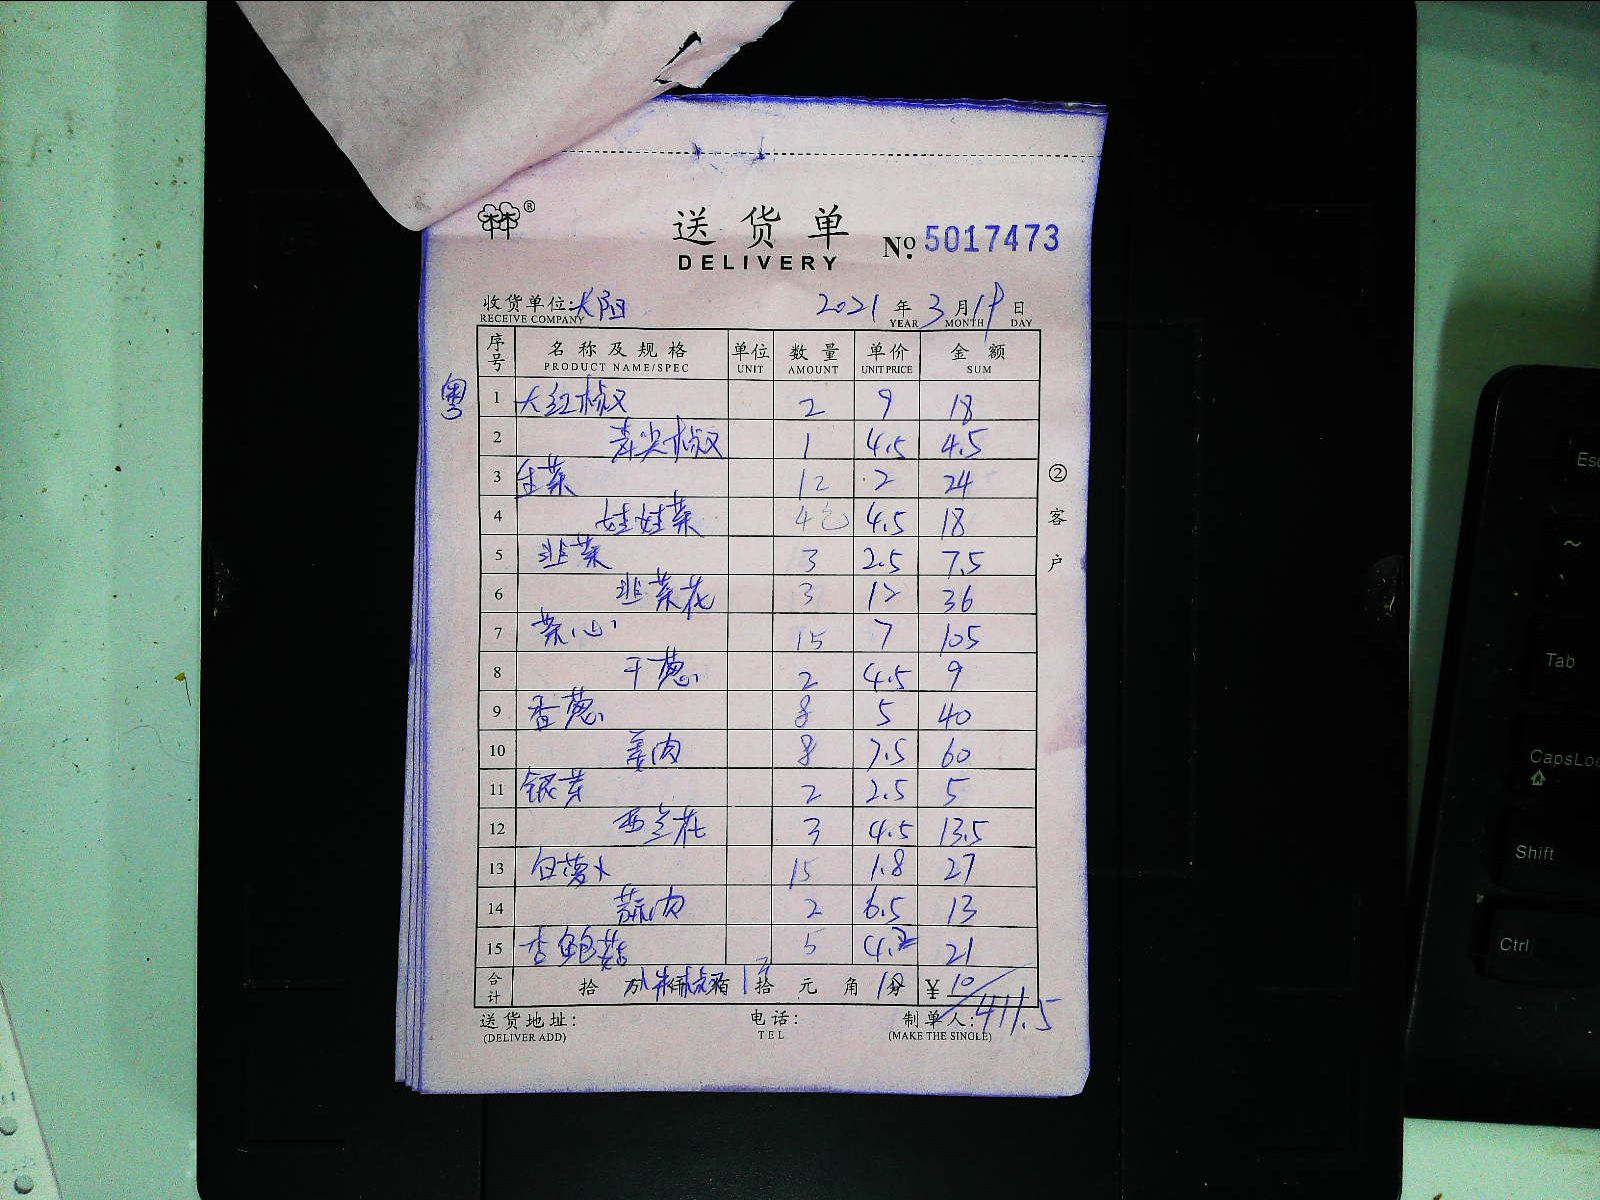 ®
送货单
DELIVERY
No. 5017473
收货单位:太阳 2021年3月19日
RECEIVE COMPANY YEAR MONTH DAY
序号 名称及规格 单位 数量 单价 金额
PRODUCT NAME/SPEC UNIT AMOUNT UNIT PRICE SUM
粤
1 大红椒 2 9 18
2 青尖椒 1 4.5 4.5
3 生菜 12 2 24
4 娃娃菜 4包 4.5 18
5 韭菜 3 2.5 7.5
6 韭菜花 3 12 36
7 菜心 15 7 105
8 干葱 2 4.5 9
9 香葱 8 5 40
10 姜肉 8 7.5 60
11 银芽 2 2.5 5
12 西兰花 3 4.5 13.5
13 白萝卜 15 1.8 27
14 蒜肉 2 6.5 13
15 杏鲍菇 5 4.2 21
合计 拾 万 拾 元 角 分 ¥10
411.5
送货地址: 电话: 制单人:
(DELIVER ADD) TEL (MAKE THE SINGLE)
②客户
Esc
~
Tab
CapsLoc
Shift
Ctrl